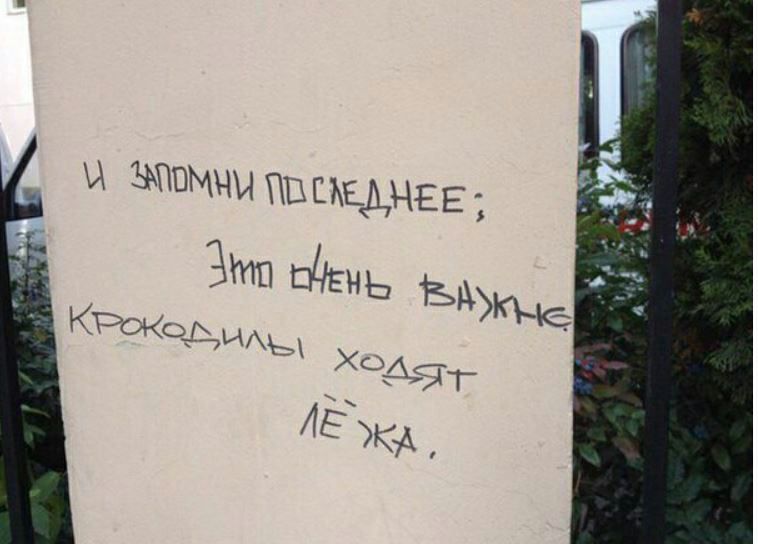 И ЗАПОМНИ ПОСЛЕДНЕЕ;
Это очень важнЕ
КРОКОДИЛЫ ХОДЯТ
ЛЁЖА.